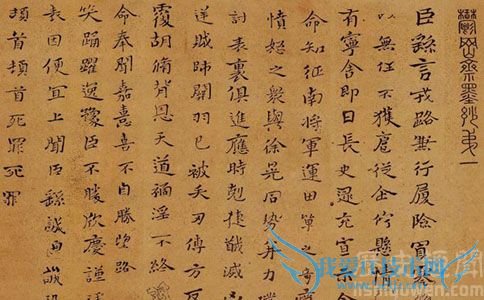 鬱岡齋墨妙第一
臣繇言戎路兼行履險冒寒
以無任不獲扈從企佇懸情
有寧舍即日長史逯充宣示
命知征南將軍運田單之奇
憤怒之衆與徐晃同勢并力撲
討表裏俱進應時剋捷馘滅
逆賊帥關羽已被矢刃傅方反
覆胡脩背恩天道禍淫不終
命奉聞嘉憙喜不自勝望路
笑踊躍逸豫臣不勝欣慶謹
表因便宜上聞臣繇誠惶誠恐
頓首頓首死罪死罪